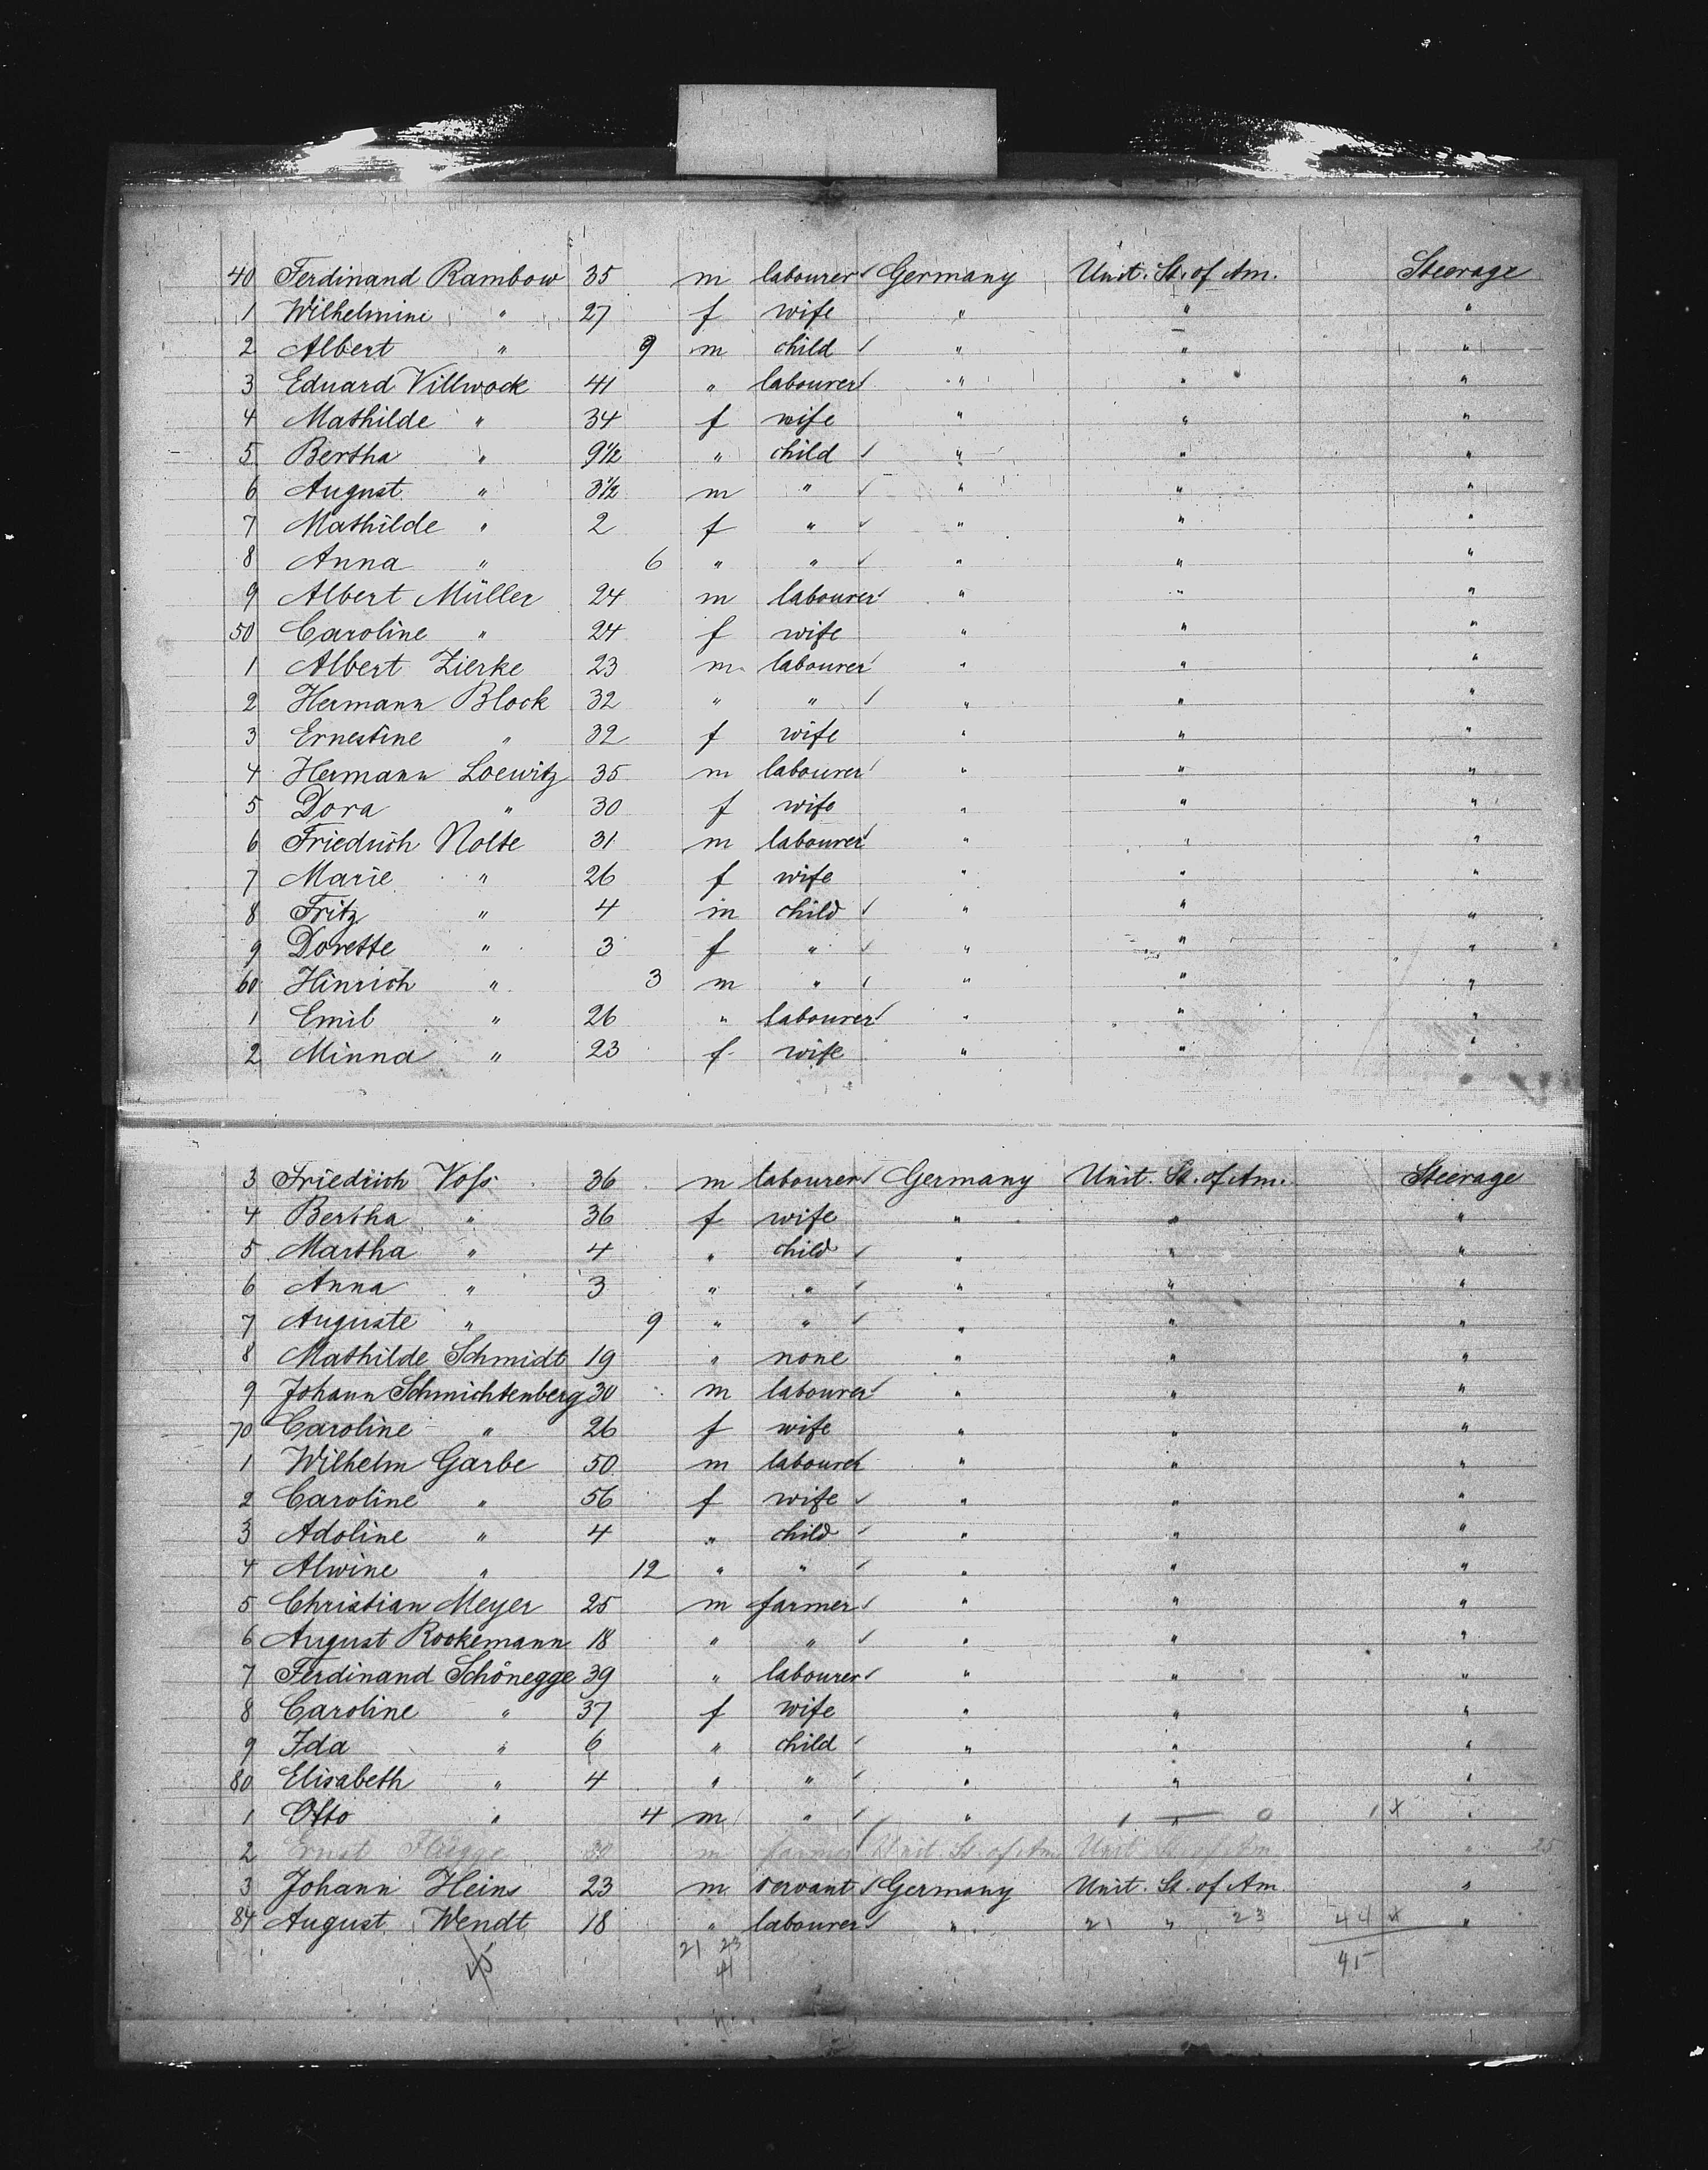 40 Ferdinand Rambow 35 m labourer Germany Unit. St. of Am. Steerage
1 Wilhelmine " 27 f wife " " "
2 Albert " 9 m child " " "
3 Eduard Villwock 41 " labourer " " "
4 Mathilde " 34 f wife " " "
5 Bertha " 9 1/2 " child " " "
6 August " 3 1/2 m " " " "
7 Mathilde " 2 f " " " "
8 Anna " 6 " " " " "
9 Albert Müller 24 m labourer " " "
50 Caroline " 24 f wife " " "
1 Albert Zierke 23 m labourer " " "
2 Hermann Block 32 " " " " "
3 Ernestine " 32 f wife " " "
4 Hermann Loewitz 35 m labourer " " "
5 Dora " 30 f wife " " "
6 Friedrich Nolte 31 m labourer " " "
7 Marie " 26 f wife " " "
8 Fritz " 4 m child " " "
9 Dorette " 3 f " " " "
60 Hinrich " 3 m " " " "
1 Emil " 26 " labourer " " "
2 Minna " 23 f wife " " "
3 Friedrich Voss 36 m labourer Germany Unit. St. of Am. Steerage
4 Bertha " 36 f wife " " "
5 Martha " 4 " child " " "
6 Anna " 3 " " " " "
7 Auguste " 9 " " " " "
8 Mathilde Schmidt 19 " none " " "
9 Johann Schmichtenberg 30 m labourer " " "
70 Caroline " 26 f wife " " "
1 Wilhelm Garbe 50 m labourer " " "
2 Caroline " 56 f wife " " "
3 Adoline " 4 " child " " "
4 Alwine " 12 " " " " "
5 Christian Meyer 25 m farmer " " "
6 August Rookemann 18 " " " " "
7 Ferdinand Schönegge 39 " labourer " " "
8 Caroline " 37 f wife " " "
9 Ida " 6 " child " " "
80 Elisabeth " 4 " " " " "
1 Otto " 4 m " " 1 — 0 1 x "
2 Ernst Flügge 30 m farmer Unit. St. of Am. Unit. St. of Am. " 25
3 Johann Heins 23 m servant Germany Unit. St. of Am. "
84 August Wendt 18 " labourer " 21 " 23 44 x "
45 21 23 45